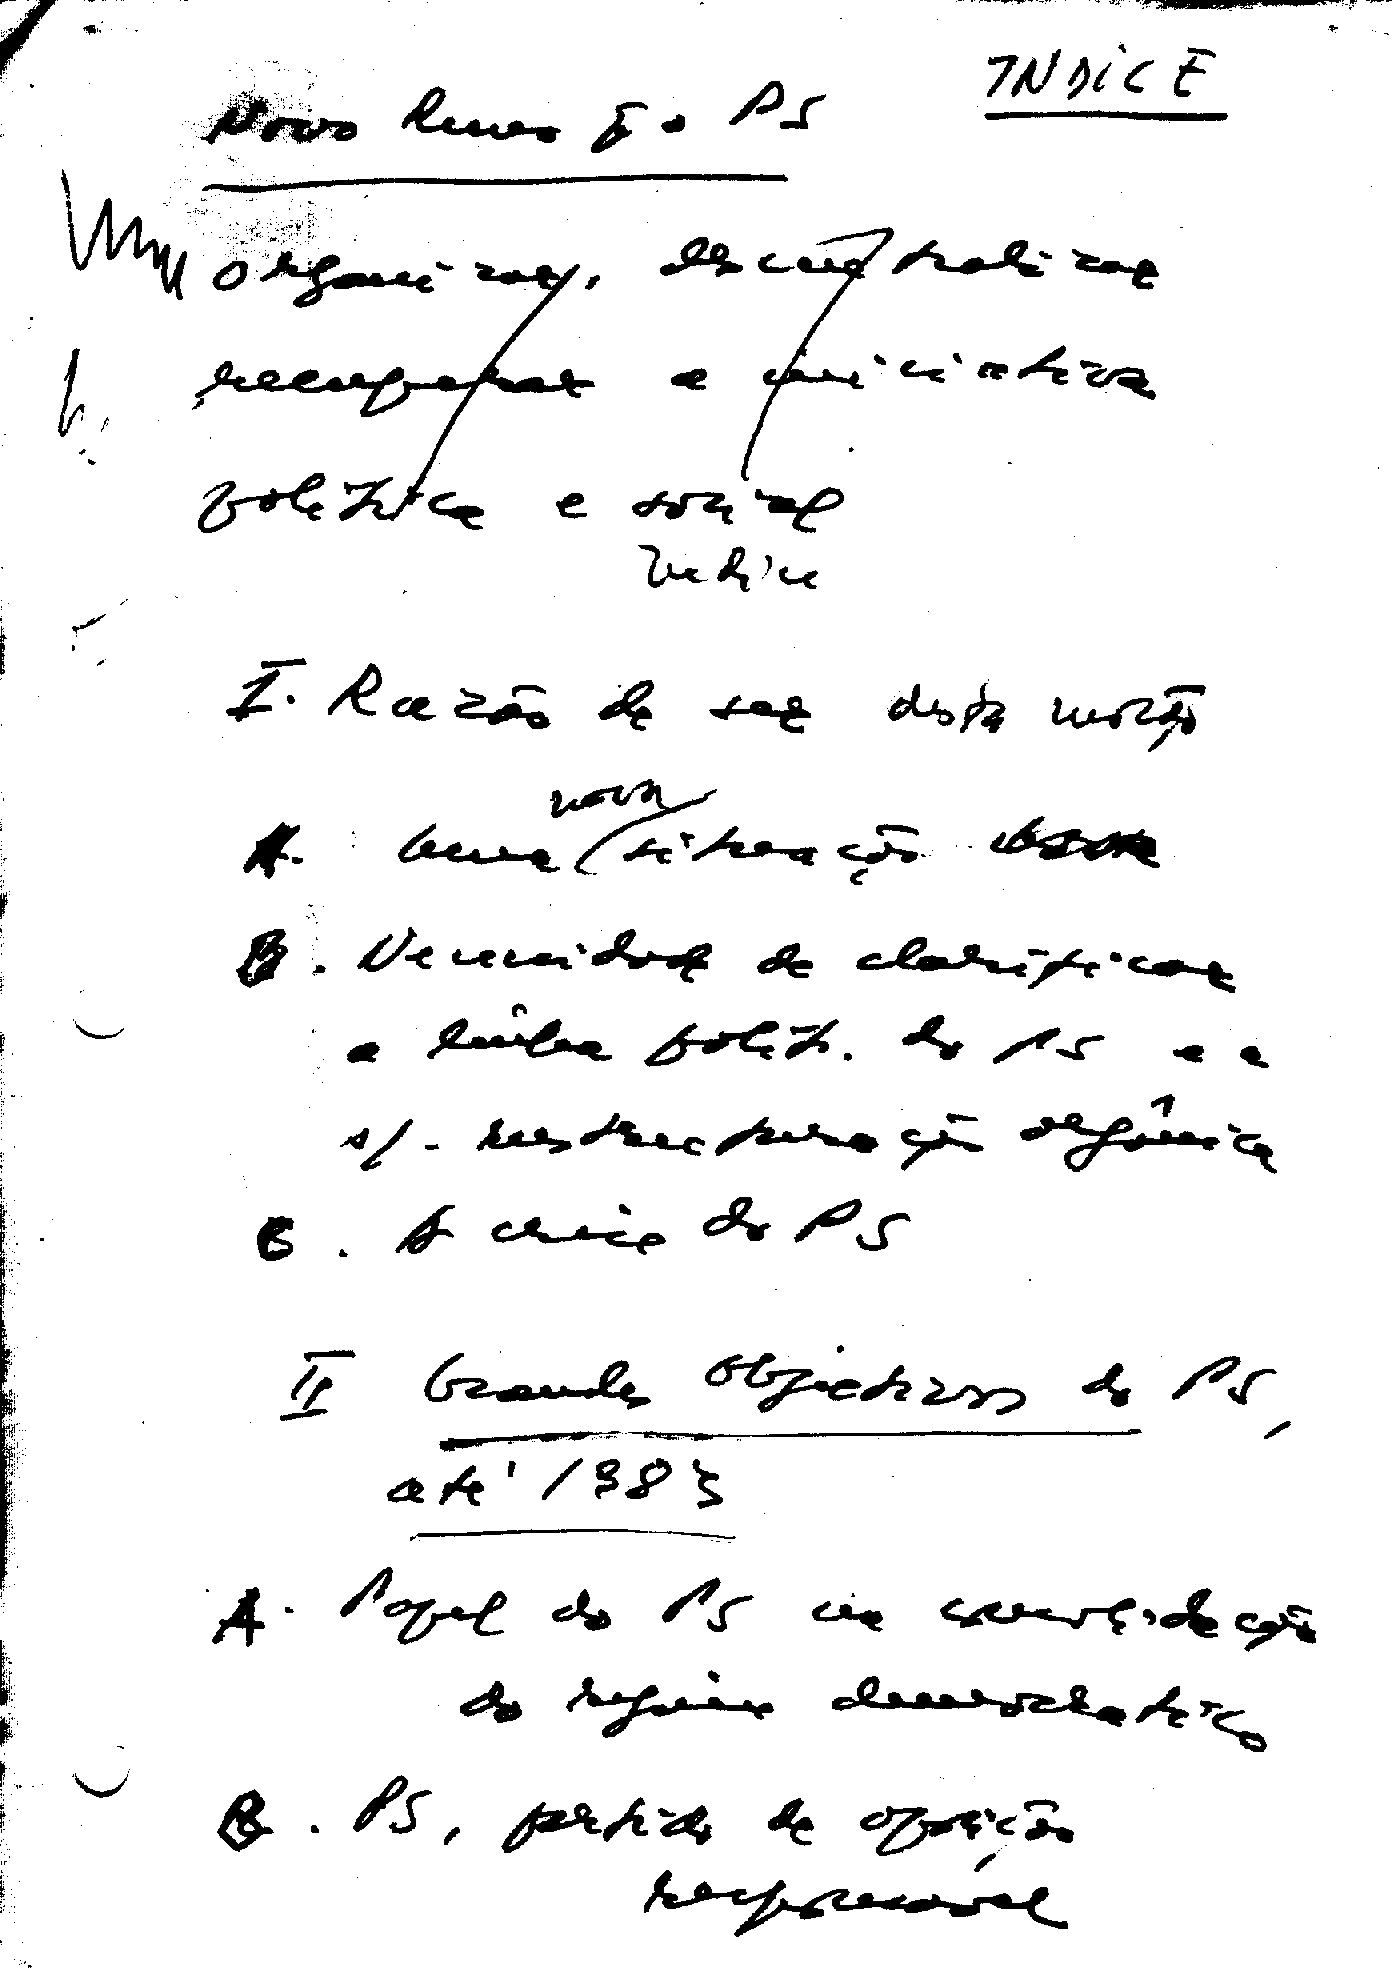 INDICE
Novo Rumo p. o PS
organizar, descentralizar
recuperar a iniciativa
política e social
Indice
I. Razão de ser desta moção
nova
A. Uma situação
B. Necessidade de clarificar
a linha polít. do PS e a
s/. reestructuração orgânica
C. A crise do PS
II Grandes Objectivos do PS,
até 1983
A. Papel do PS na consolidação
do regime democrático
B. PS, partido de oposição
responsável